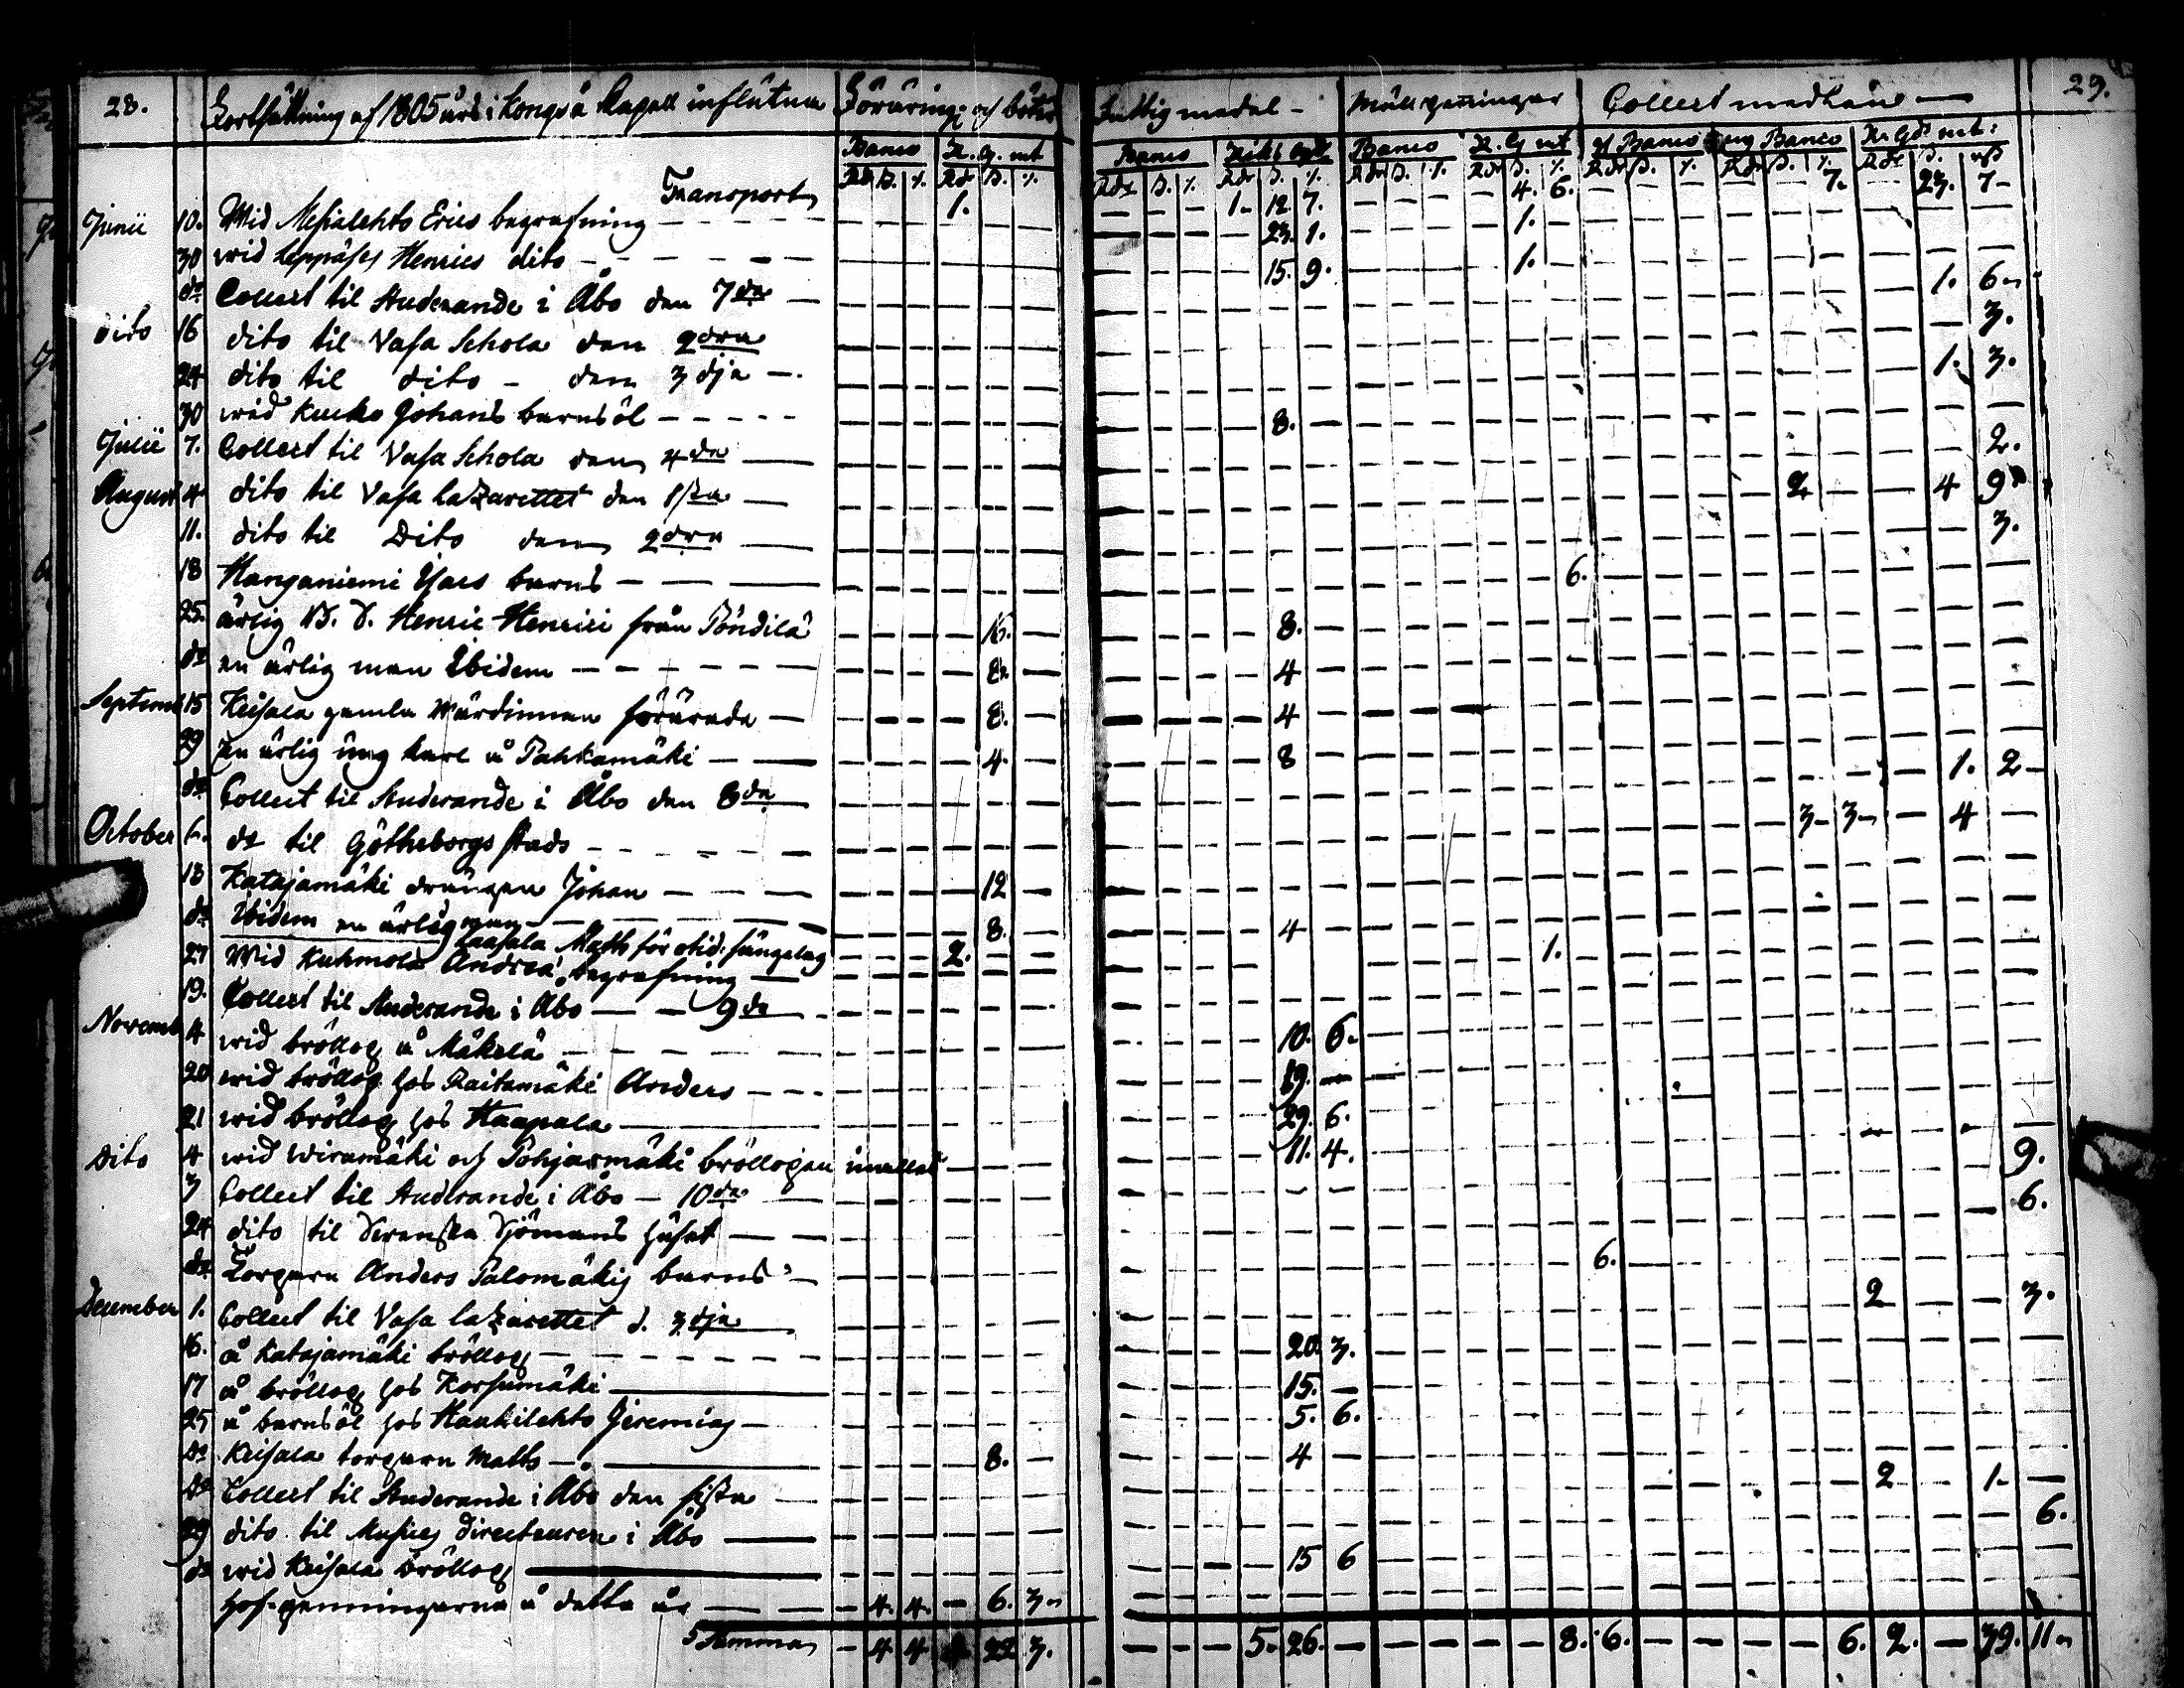 28. Fortsättning af 1805 års i Kapell influtna Föräring: och böter Fattig medel - Mull penningar Collect medlårne 29.
Banco R. G. mt Banco Riks Banco R. G. mt Banco Banco R: Gds mt:
Rdr ß. Rdr ß. Rdr ß. Rdr ß. Rdr ß. Rdr ß. Rdr ß. Rdr ß. Rdr ß.
Transport 1. 1- 12. 7. 4. 6. 7. 23. 7-
Junii 10. Wid Erics begrafning 23. 1. 1.
30 wid Henrics dito 15. 9. 1.
do Collect til Studerande i Åbo den 7de 1. 6
dito 16 dito til Vasa Schola den 2dra 3.
24 dito til dito - den 3dje 1. 3.
30 wid Kucko Johans barnsöl 8.
Julii 7. Collect til Vasa Schola den 4de 2.
August 4 dito til Vasa lazarettet den 1sta 2 4 9
11. dito til Dito den 2dra 3.
18 Hanganiemi barns 6.
25. ärlig B. D. Henric Henrici från Töndilä 16. 8.
do en ärlig man Ibidem 8. 4
Septemb 15 Keisala gamla Wärdinnan förärade 8. 4
29 en ärlig ung karl å Pahkamäki 4. 8
do Collect til Studerande i Åbo den 8de 1. 2
October 6. do til Götheborgs stads 3 3 4
13 Katajamäki drängen Johan 12
do Ibidem en ärlig man 8. 4
Laasala Math för otid: sängelag 2.
27 Wid Kuhmola Andreä begrafning 1.
19. Collect til Studerande i Åbo 9de
Novemb 4 wid bröllop å Mäkelä 10. 6.
20 wid bröllop hos Raitamäki Anders 19.
21 wid bröllop hos Haapala 29. 6.
Dito 4 wid Wiramäki och Pohjasmäki bröllopen 11. 4.
3 Collect til Studerande i Åbo - 10de 9.
24 dito til Svenska Sjömans huset 6.
do Torparn Anders Palomäkis barns 6.
December 1. Collect til Vasa lazarettet d. 3dje 2 3.
16. å Katajamäki bröllop 20. 3.
17 å bröllop hos Korsumäki 15.
25 å barnsöl hos Haukilehto Jeremias 5. 6.
Do Keisala torparn Matts 8. 4
Do Collect til Studerande i Åbo den sista 2 1.
29 dito til Musices Directeuren i Åbo 6.
do wid Keisala bröllop 15 6
Hof-penningarne å detta år 4. 4. 6. 3
Summa 4 4 22 3. 5. 26. 8. 6. 6. 2. 39. 11